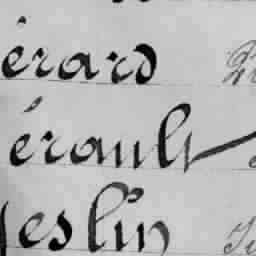 érard
érault
eslin